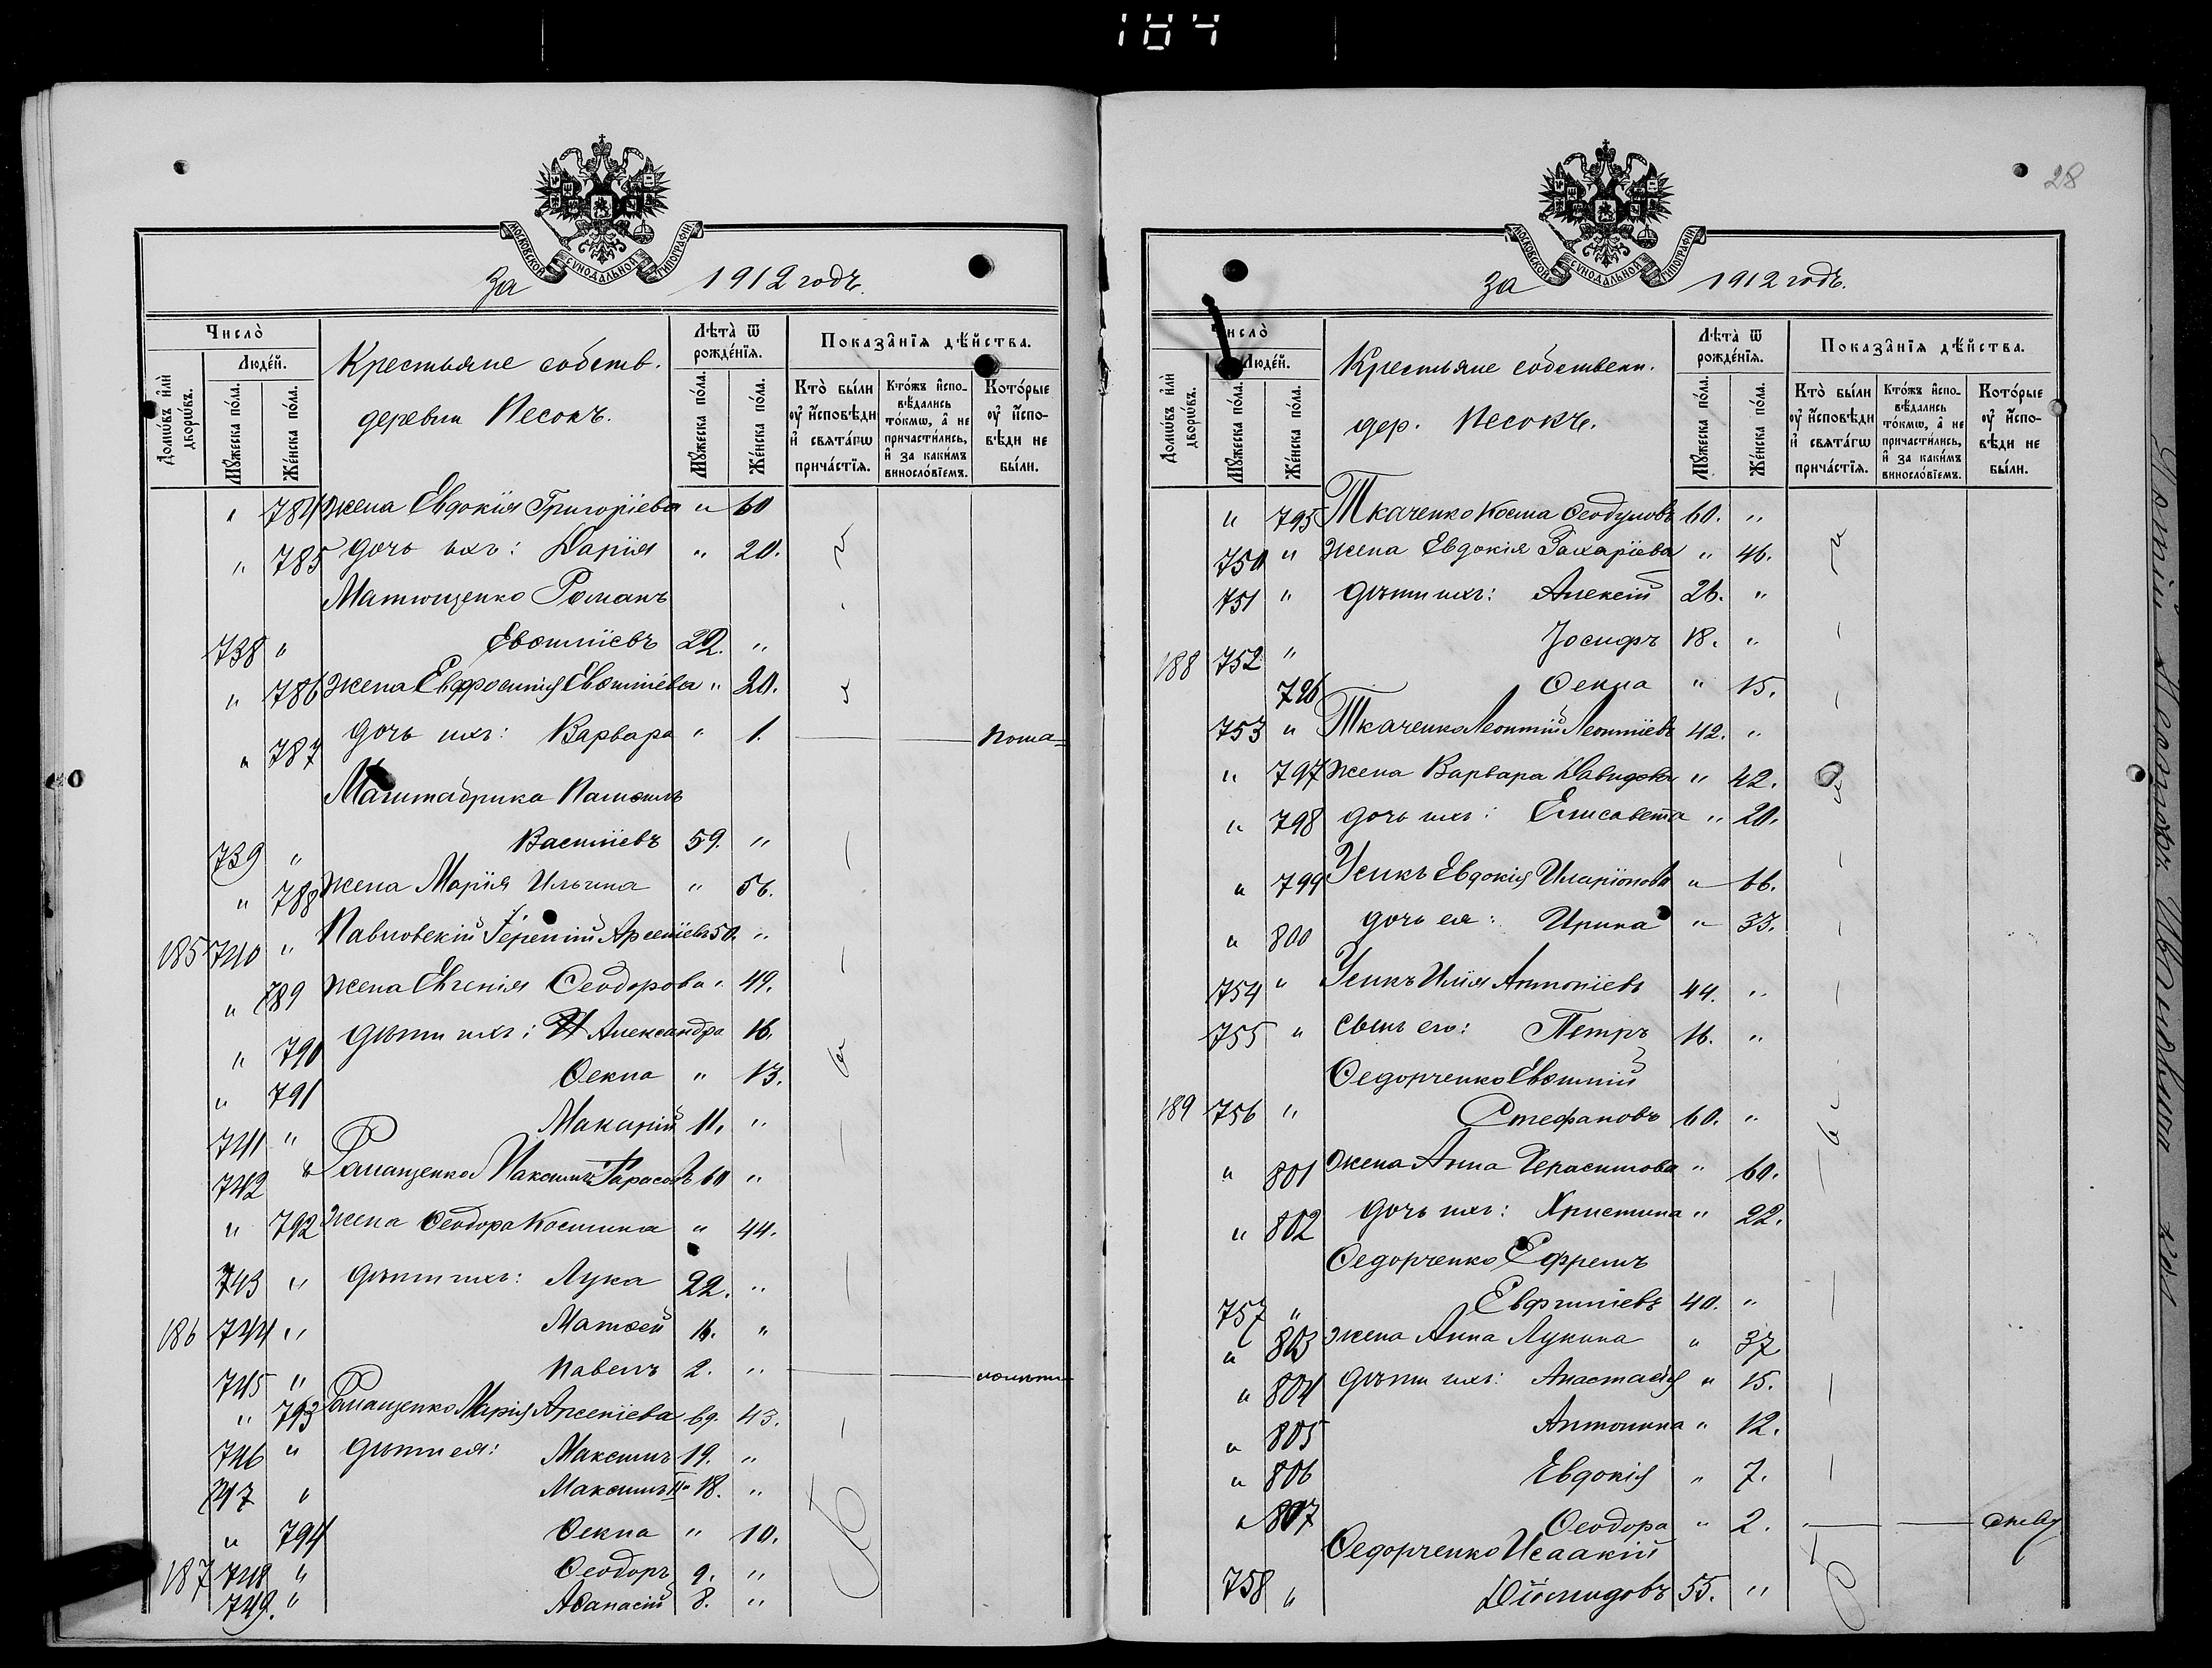 184
28
МОСКОВСКОЙ СѴНОДАЛЬНОЙ ТИПОГРАФІИ
За 1912 годъ.
Число̀
Домѡ́въ и҆лѝ дворѡ́въ.
Люде́й.
Мꙋ́жеска по́ла.
Же́нска по́ла.
Крестьяне собств.
деревни Песокъ.
Лѣта̀ ѿ рожде́нїѧ.
Мꙋ́жеска по́ла.
Же́нска по́ла.
Показа̂нїѧ дѣ́йства.
Кто̀ бы́ли оу҆ и҆сповѣ́ди и҆ свѧта́гѡ прича́стїѧ.
Кто́жъ и҆сповѣ́дались то́кмѡ, а҆ не причасти́лись, и҆ за каки́мъ винносло́вїемъ.
Кото́рые оу҆ и҆сповѣ́ди не бы́ли.
" 784 жена Евдокія Григоріева " 60
" 785 дочь ихъ: Дарія " 20.
Матющенко Романъ
738 " Евѳиміевъ 22. "
" 786 жена Евфросинія Евѳиміева " 20.
" 787 дочь ихъ: Варвара " 1.
Василіевъ 59. "
739 "
" 788 жена Марія Ильина " 56.
185 740 " Павловскій Іеремій Арсеніевъ 50. "
" 789 жена Евгенія Ѳеодорова " 49.
" 790 дѣти ихъ: Александра 16.
" 791 Ѳекла " 13.
741 " Макарій 11. "
742 " Романценко Максимъ Тарасовъ 60 "
" 792 жена Ѳеодора Космина " 44.
743 " дѣти ихъ: Лука 22. "
186 744 " Матѳей 16. "
745 " Павелъ 2. "
" 793 Романценко Марія Арсеніева 69. 43.
746 " дѣти ея: Максимъ 19. "
747 " Максимъ II-й 18. "
" 794 Ѳекла " 10.
187 748 " Ѳеодоръ 9. "
749. " Аѳанасій 8. "
МОСКОВСКОЙ СѴНОДАЛЬНОЙ ТИПОГРАФІИ
За 1912 годъ.
Число̀
Домѡ́въ и҆лѝ дворѡ́въ.
Люде́й.
Мꙋ́жеска по́ла.
Же́нска по́ла.
Крестьяне собственн.
дер. Песокъ.
Лѣта̀ ѿ рожде́нїѧ.
Мꙋ́жеска по́ла.
Же́нска по́ла.
Показа̂нїѧ дѣ́йства.
Кто̀ бы́ли оу҆ и҆сповѣ́ди и҆ свѧта́гѡ прича́стїѧ.
Кто́жъ и҆сповѣ́дались то́кмѡ, а҆ не причасти́лись, и҆ за каки́мъ винносло́вїемъ.
Кото́рые оу҆ и҆сповѣ́ди не бы́ли.
" 795 Ткаченко Косма Ѳеодуловъ 60. "
750 " жена Евдокія Захаріева " 46.
751 " дѣти ихъ: Алексій 26. "
188 752 " Іосифъ 18. "
796 Ѳекла " 15.
753 " Ткаченко Леонтій Леонтіевъ 42. "
" 797 жена Варвара Давидова " 42.
" 798 дочь ихъ: Елисавета " 20.
" 799 Усикъ Евдокія Иларіонова " 66.
" 800 дочь ея: Ирина " 33.
754 " Усикъ Илія Антоніевъ 44. "
755 " сынъ его: Петръ 16. "
Ѳедорченко Евѳимій
189 756 " Стефановъ 60. "
" 801 жена Анна Герасимова " 60.
" 802 дочь ихъ: Христина " 22.
Ѳедорченко Ефремъ
757 " Евфиміевъ 40. "
" 803 жена Анна Лукина " 37
" 804 дѣти ихъ: Анастасія " 15.
" 805 Антонина " 12.
" 806 Евдокія " 7.
" 807 Ѳеодора " 2.
Ѳедорченко Исаакій
758 " Діомидовъ 55. "